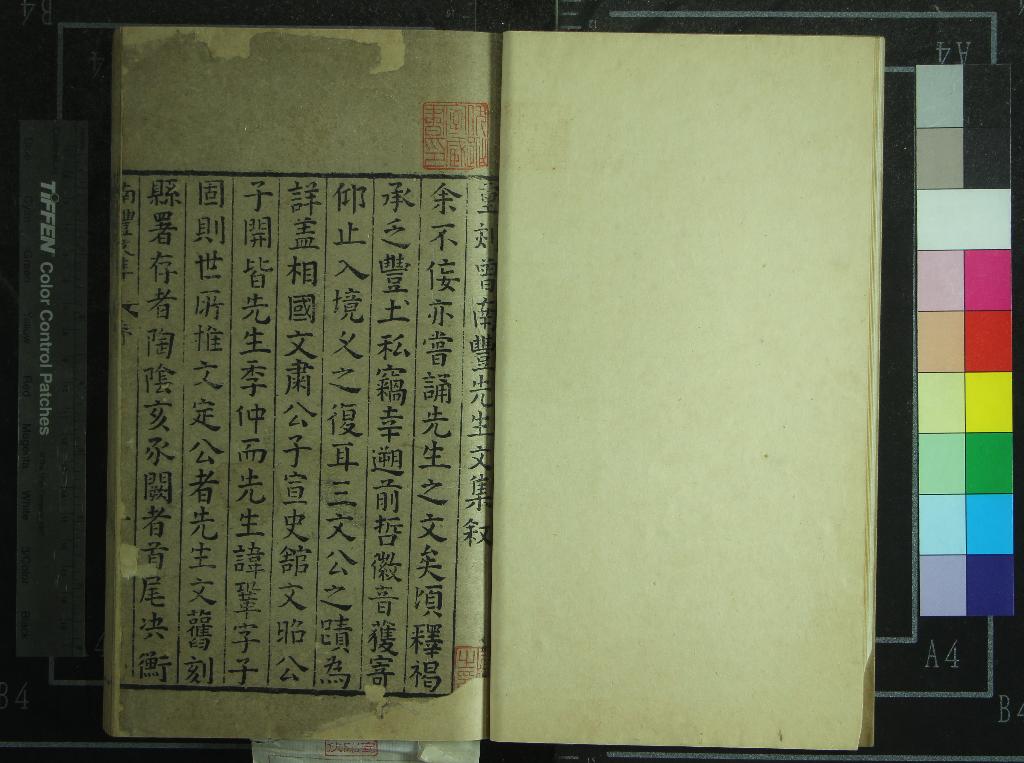 重刻曾南豐先生文集叙
余不佞亦嘗誦先生之文矣頃釋褐
承乏豐土私竊幸遡前哲徽音獲寄
仰止入境乂之復耳三文公之蹟為
詳盖相國文肅公子宣史舘文昭公
子開皆先生季仲而先生諱鞏字子
固則世所推文定公者先生文舊刻
縣署存者陶陰亥豕闕者首尾决衡
南豐文集
TIFFEN Color Control Patches
A4
A4
B4
B4
B4